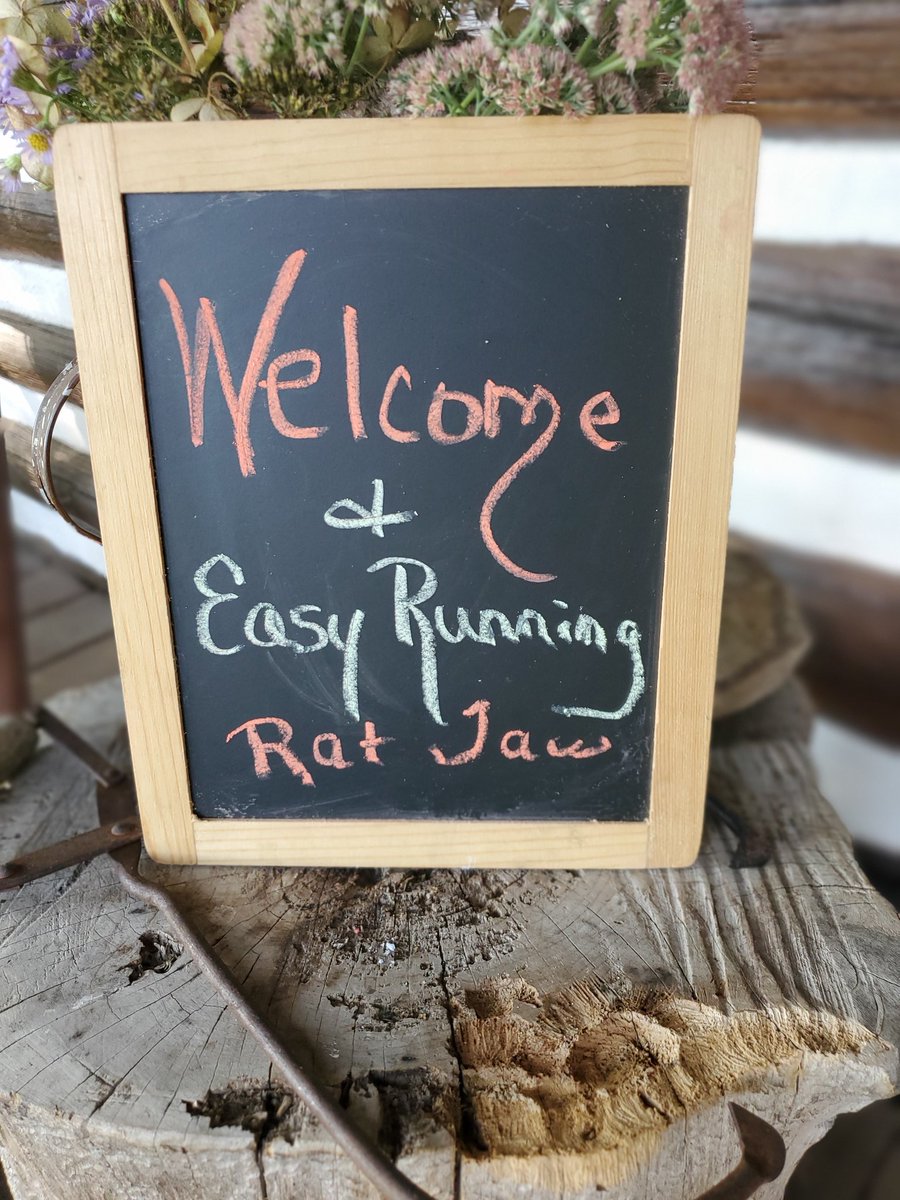 Welcome
&
Easy Running
Rat Jaw